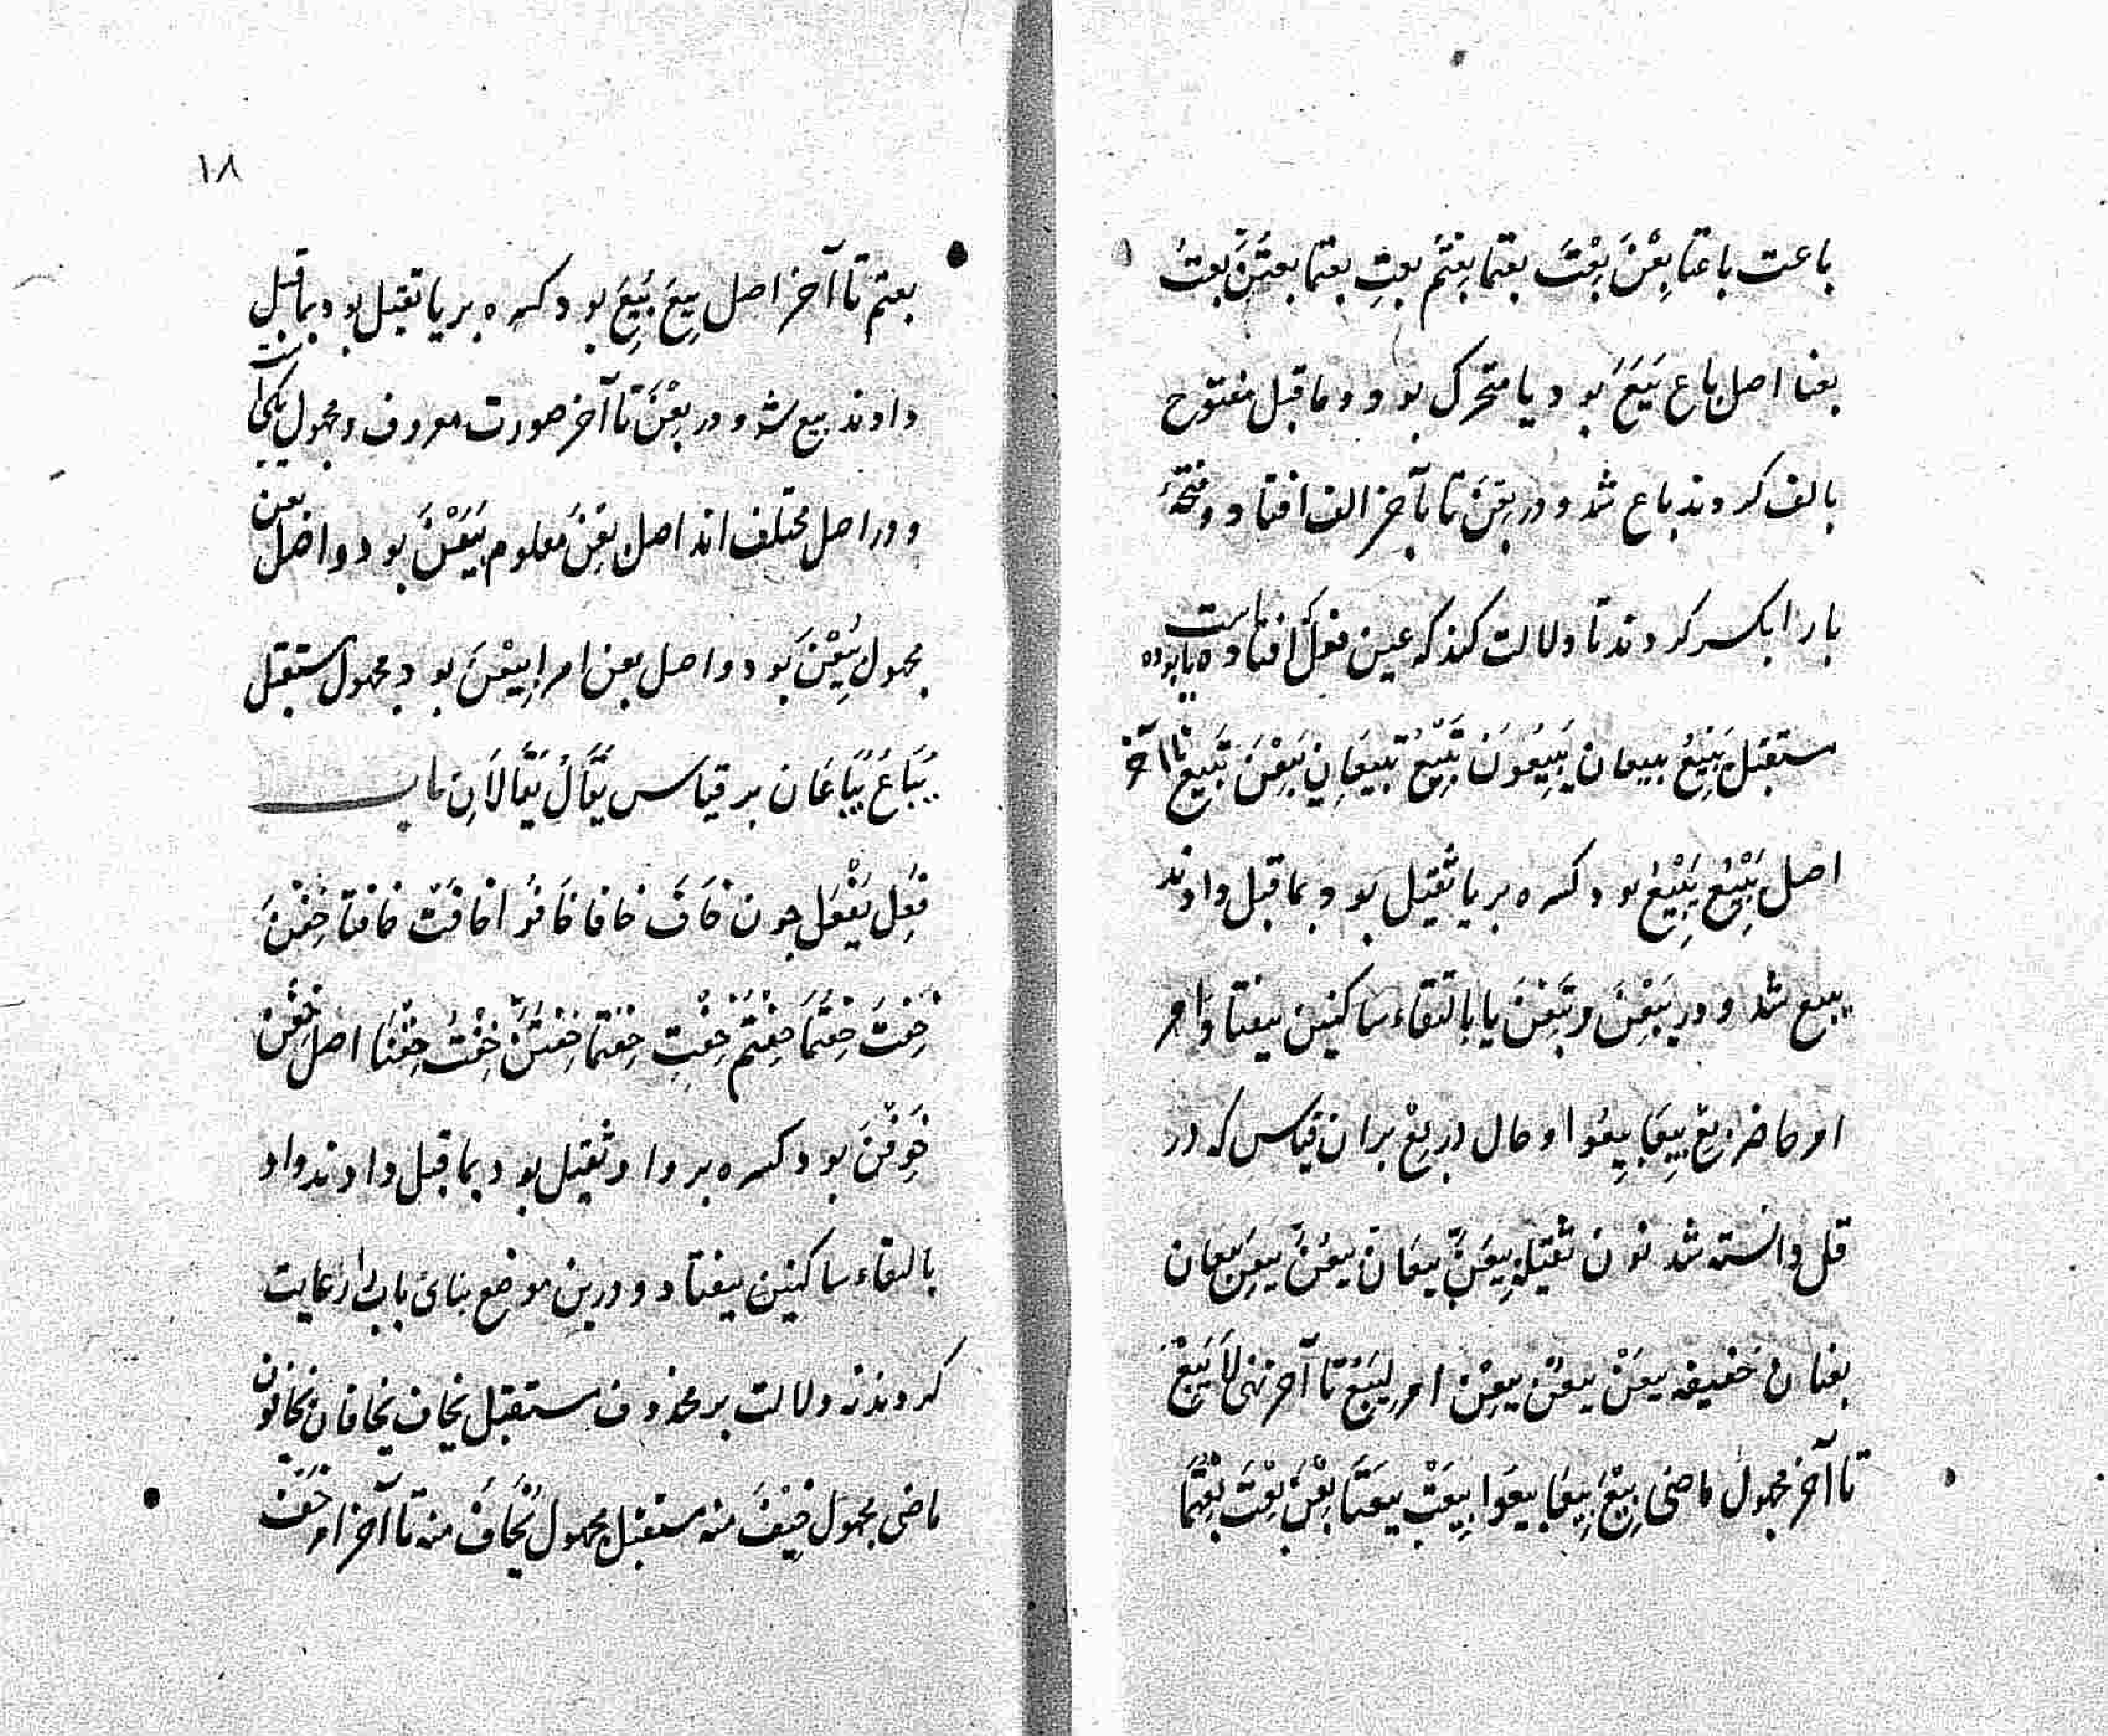 باعت باعتا بِعْنَ بِعْتَ بعتما بِعْتُم بعتِ بعتما بعتُنَّ بعتُ
بعنا اصل باع بَیَعَ بود یا متحرک بود و ماقبل مفتوح
بالف کردند باع شد و در بِعْنَ تا بآخر الف افتاد و فتحهٔ
بارا بکسر کردند تا دلالت کند که عین فعل که افتاده است یا بوده
مستقبل یَبِیْعُ یبیعان یَبِیْعُونَ تَبِیْعُ تبیعانِ یَبِعْنَ تَبِیعُ تا آخر
اصل یَبِیْعُ یَبْیِعُ بود کسره بر یا ثقیل بود بماقبل دادند
یبیع شد و در یَبِعْنَ و تَبِعْنَ یا بالتقاء ساکنین بیفتاد و امر
امر حاضر بِعْ بِیعَا بِیعُوا و حال در بِعْ بران قیاس که در
قل دانسته شد نون ثقیله بِیعَنَّ بیعانّ بیعُنَّ بیعِنَّ بیعان
بعنانّ خفیفه بیعَنْ بیعُنْ بیعِنْ امر لِیَبِعْ تا آخر نهی لَا یَبِعْ
تا آخر مجهول ماضی بِیْعَ بِیعَا بیعُوا بِیعَتْ بیعَتَا بِعْنَ بِعْتَ بِعْتُمَا
۱۸
بعتم تا آخر اصل بِیعَ بُیِعَ بود کسره بر یا ثقیل بود بماقبل
دادند بیع شد و در بِعْنَ تا آخر صورت معروف و مجهول یکی است
و در اصل مختلف اند اصل بِعْنَ معلوم بَیَعْنَ بود و اصل بعن
مجهول بُیِعْنَ بود و اصل بعن امر اِبیِعْنَ بود مجهول مستقبل
یُبَاعُ یُبَاعَان بر قیاس یُقَالُ یُقَالَانِ باب
فَعِلَ یَفْعَل چون خَافَ خافا خَافُوا خافَتْ خافتا خِفْنَ
خِفْتَ خِفْتُمَا خِفْتُمْ خِفْتِ خِفْتُمَا خِفْتُنَّ خِفْتُ خِفْنَا اصل خِفْنَ
خَوِفْنَ بود کسره بر واو ثقیل بود بماقبل دادند واو
بالتقاء ساکنین بیفتاد و درین موضع بنای باب را رعایت
کردند نه دلالت بر محذوف مستقبل یخاف یخافان یخافون
ماضی مجهول خِیْفَ منه مستقبل مجهول یُخَافُ منه تا آخر امر خَفْ